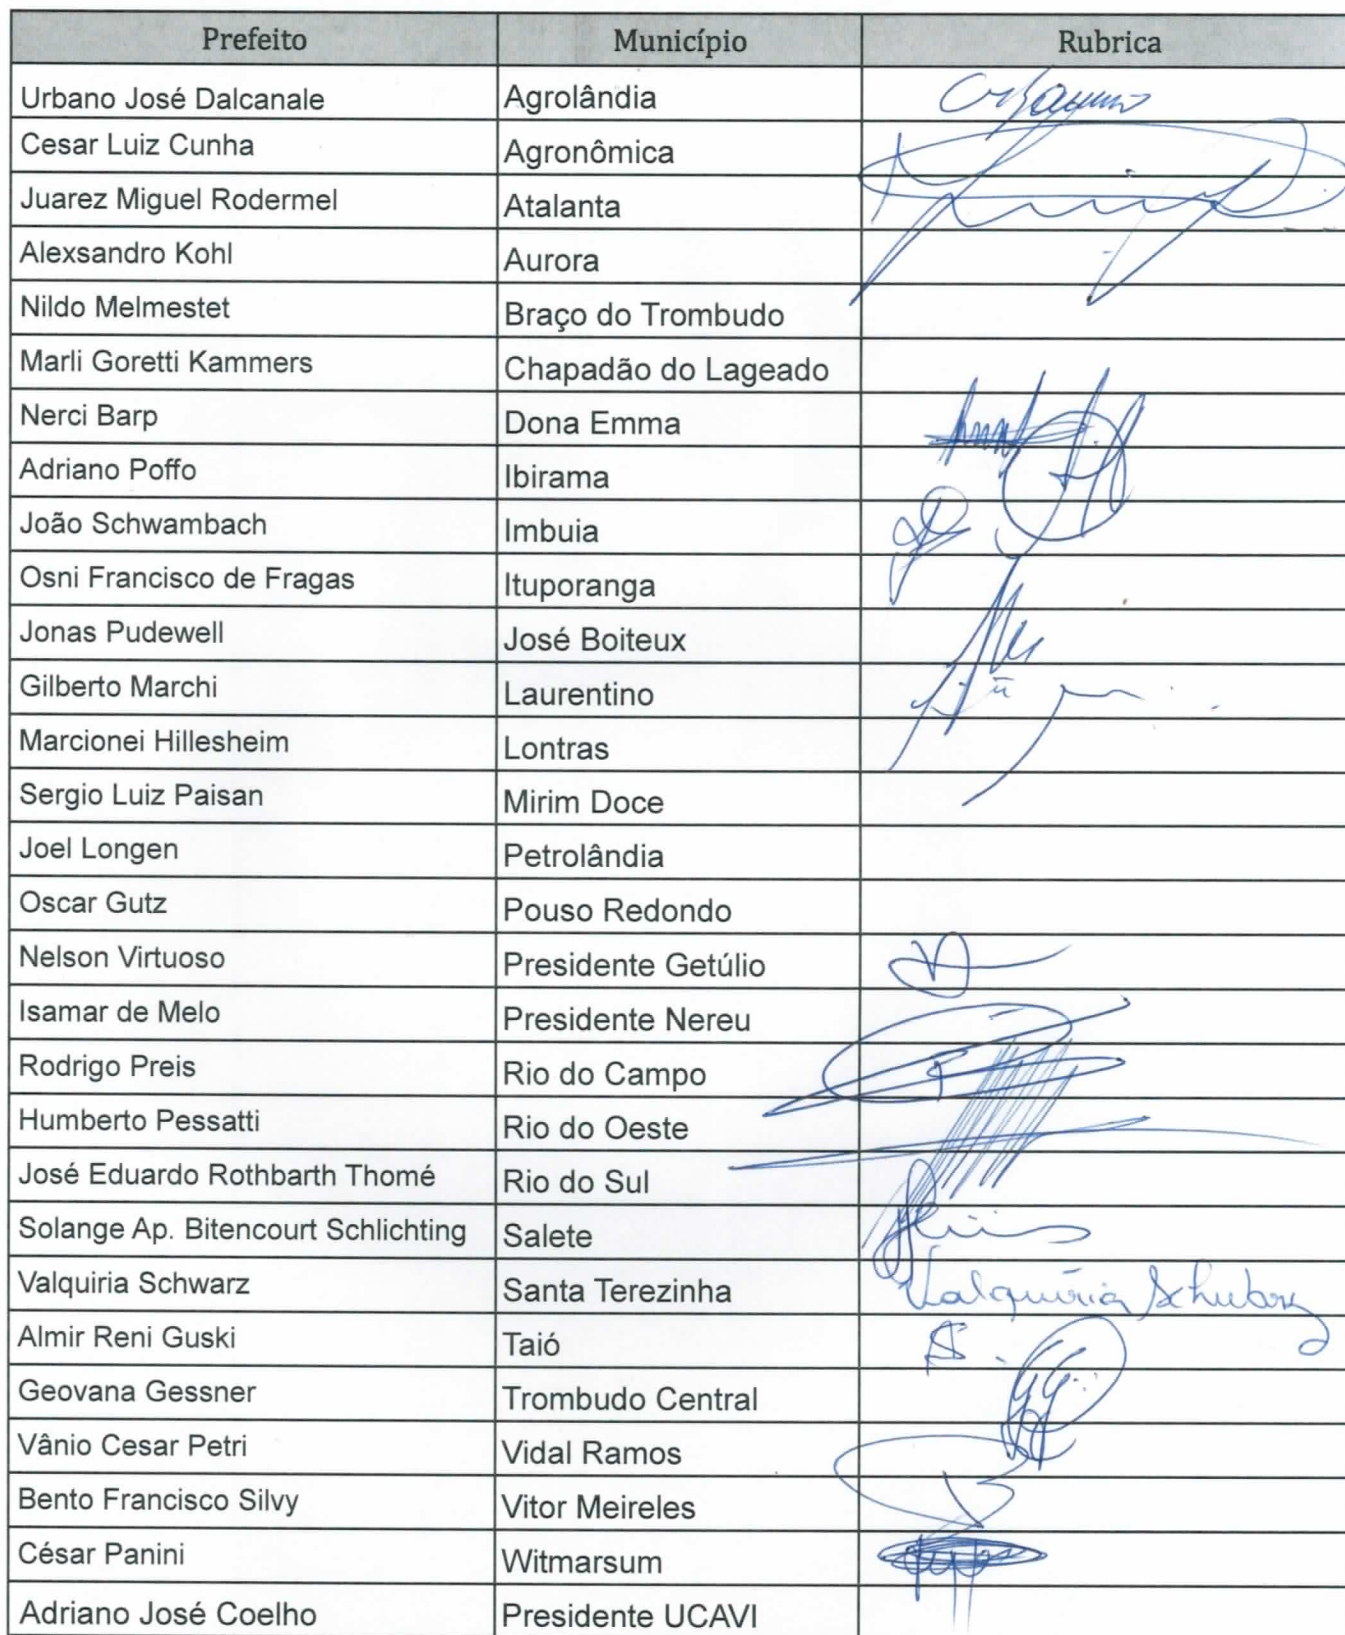 Prefeito Município Rubrica
Urbano José Dalcanale Agrolândia
Cesar Luiz Cunha Agronômica
Juarez Miguel Rodermel Atalanta
Alexsandro Kohl Aurora
Nildo Melmestet Braço do Trombudo
Marli Goretti Kammers Chapadão do Lageado
Nerci Barp Dona Emma
Adriano Poffo Ibirama
João Schwambach Imbuia
Osni Francisco de Fragas Ituporanga
Jonas Pudewell José Boiteux
Gilberto Marchi Laurentino
Marcionei Hillesheim Lontras
Sergio Luiz Paisan Mirim Doce
Joel Longen Petrolândia
Oscar Gutz Pouso Redondo
Nelson Virtuoso Presidente Getúlio
Isamar de Melo Presidente Nereu
Rodrigo Preis Rio do Campo
Humberto Pessatti Rio do Oeste
José Eduardo Rothbarth Thomé Rio do Sul
Solange Ap. Bitencourt Schlichting Salete
Valquiria Schwarz Santa Terezinha Valquíria
Almir Reni Guski Taió
Geovana Gessner Trombudo Central
Vânio Cesar Petri Vidal Ramos
Bento Francisco Silvy Vitor Meireles
César Panini Witmarsum
Adriano José Coelho Presidente UCAVI